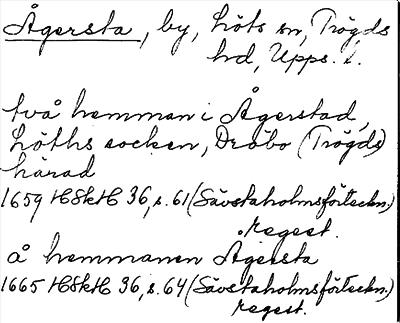 Ågersta, by, Löts sn, Trögds
hd, Upps. l.
två hemman i Ågerstad,
Löths socken, Dröbo (Trögds)
härad
1659 HSkH 36, s. 61 (Sävstaholmsförteckn.)
regest.
å hemmanen Ågersta
1665 HSkH 36, s. 64 (Sävstaholmsförteckn.)
regest.